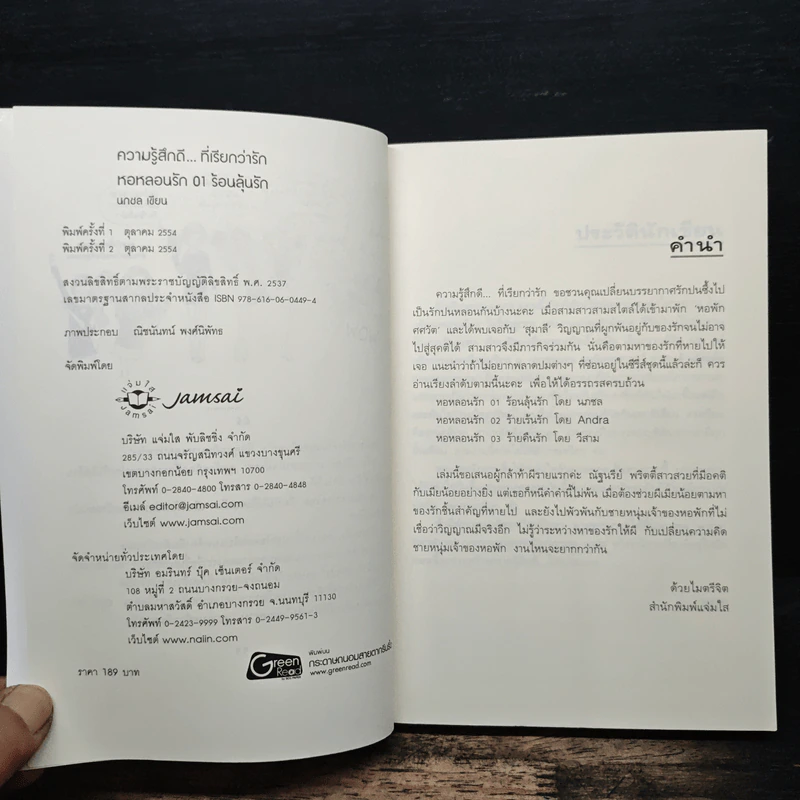 ความรู้สึกดี... ที่เรียกว่ารัก
หอหลอนรัก 01 ร้อนลุ้นรัก
นภชล เขียน
พิมพ์ครั้งที่ 1 ตุลาคม 2554
พิมพ์ครั้งที่ 2 ตุลาคม 2554
สงวนลิขสิทธิ์ตามพระราชบัญญัติลิขสิทธิ์ พ.ศ. 2537
เลขมาตรฐานสากลประจำหนังสือ ISBN 978-616-06-0449-4
ภาพประกอบ ณิชนันทน์ พงศ์นิพัทธ
จัดพิมพ์โดย
แจ่มใส
Jamsai
Jamsai
บริษัท แจ่มใส พับลิชชิ่ง จำกัด
285/33 ถนนจรัญสนิทวงศ์ แขวงบางขุนศรี
เขตบางกอกน้อย กรุงเทพฯ 10700
โทรศัพท์ 0-2840-4800 โทรสาร 0-2840-4848
อีเมล์ editor@jamsai.com
เว็บไซต์ www.jamsai.com
จัดจำหน่ายทั่วประเทศโดย
บริษัท อมรินทร์ บุ๊ค เซ็นเตอร์ จำกัด
108 หมู่ที่ 2 ถนนบางกรวย-จงถนอม
ตำบลมหาสวัสดิ์ อำเภอบางกรวย จ.นนทบุรี 11130
โทรศัพท์ 0-2423-9999 โทรสาร 0-2449-9561-3
เว็บไซต์ www.naiin.com
ราคา 189 บาท
Green Read
พิมพ์บน
กระดาษถนอมสายตากรีนรี้ด
www.greenread.com
คำนำ
ความรู้สึกดี... ที่เรียกว่ารัก ขอชวนคุณเปลี่ยนบรรยากาศรักปนซึ้งไป
เป็นรักปนหลอนกันบ้างนะคะ เมื่อสามสาวสามสไตล์ได้เข้ามาพัก 'หอพัก
ศศวัต' และได้พบเจอกับ 'สุมาลี' วิญญาณที่ผูกพันอยู่กับของรักจนไม่อาจ
ไปสู่สุคติได้ สามสาวจึงมีภารกิจร่วมกัน นั่นคือตามหาของรักที่หายไปให้
เจอ แนะนำว่าถ้าไม่อยากพลาดปมต่างๆ ที่ซ่อนอยู่ในซีรี่ส์ชุดนี้แล้วล่ะก็ ควร
อ่านเรียงลำดับตามนี้นะคะ เพื่อให้ได้อรรถรสครบถ้วน
หอหลอนรัก 01 ร้อนลุ้นรัก โดย นภชล
หอหลอนรัก 02 ร้ายเร้นรัก โดย Andra
หอหลอนรัก 03 ร้ายคืนรัก โดย วีสาม
เล่มนี้ขอเสนอผู้กล้าท้าผีรายแรกค่ะ ณัฐนรีย์ พริตตี้สาวสวยที่มีอคติ
กับเมียน้อยอย่างยิ่ง แต่เธอก็หนีคำคำนี้ไม่พ้น เมื่อต้องช่วยผีเมียน้อยตามหา
ของรักชิ้นสำคัญที่หายไป และยังไปพัวพันกับชายหนุ่มเจ้าของหอพักที่ไม่
เชื่อว่าวิญญาณมีจริงอีก ไม่รู้ว่าระหว่างหาของรักให้ผี กับเปลี่ยนความคิด
ชายหนุ่มเจ้าของหอพัก งานไหนจะยากกว่ากัน
ด้วยไมตรีจิต
สำนักพิมพ์แจ่มใส